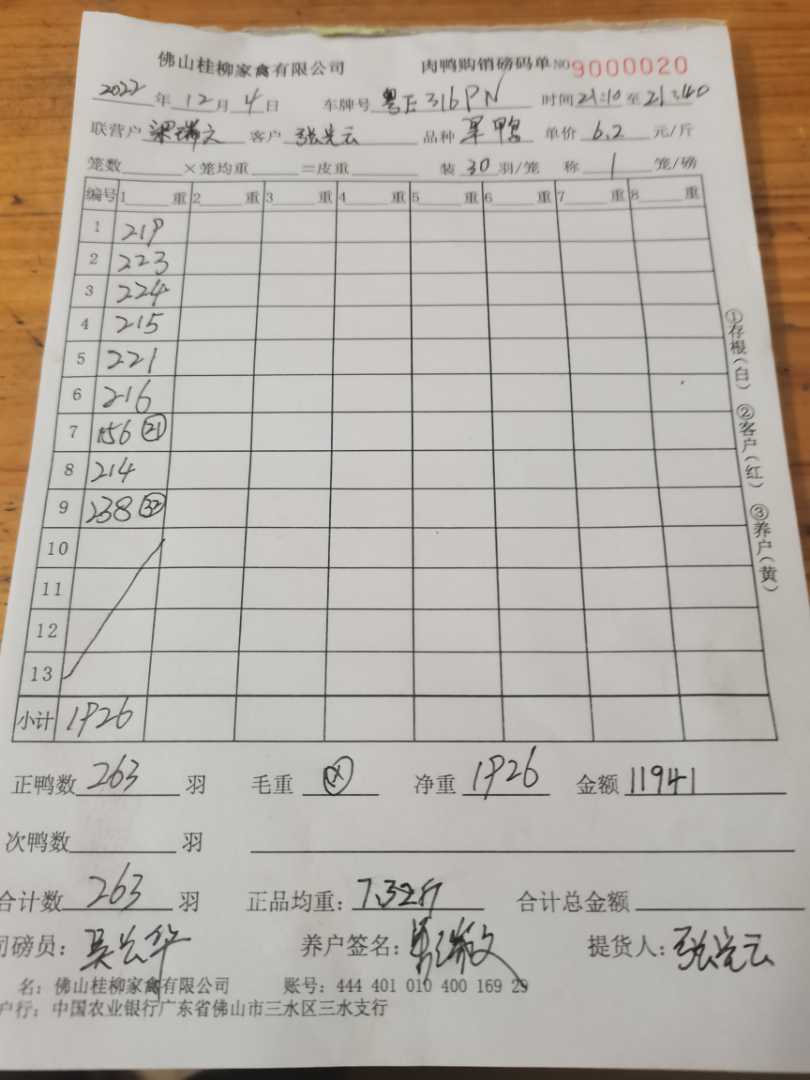 佛山桂柳家禽有限公司 肉鸭购销磅码单 NO 9000020
2022年12月4日 车牌号 粤E316PN 时间21:10至21:40
联营户 梁瑞文 客户 张先云 品种 单价 6.2 元/斤
笼数 ×笼均重 =皮重 装 30 羽/笼 称 1 笼/磅
编号 1 重 2 重 3 重 4 重 5 重 6 重 7 重 8 重
1 219
2 223
3 224
4 215
5 221
6 216
7 156 21
8 214
9 238
10
11
12
13
小计 1926
①存根(白) ②客户(红) ③养户(黄)
正鸭数 263 羽 毛重 净重 1926 金额 11941
次鸭数 羽
合计数 263 羽 正品均重: 7.32斤 合计总金额
司磅员: 养户签名: 提货人: 张先云
名: 佛山桂柳家禽有限公司 账号: 444 401 010 400 169 29
户行: 中国农业银行广东省佛山市三水区三水支行